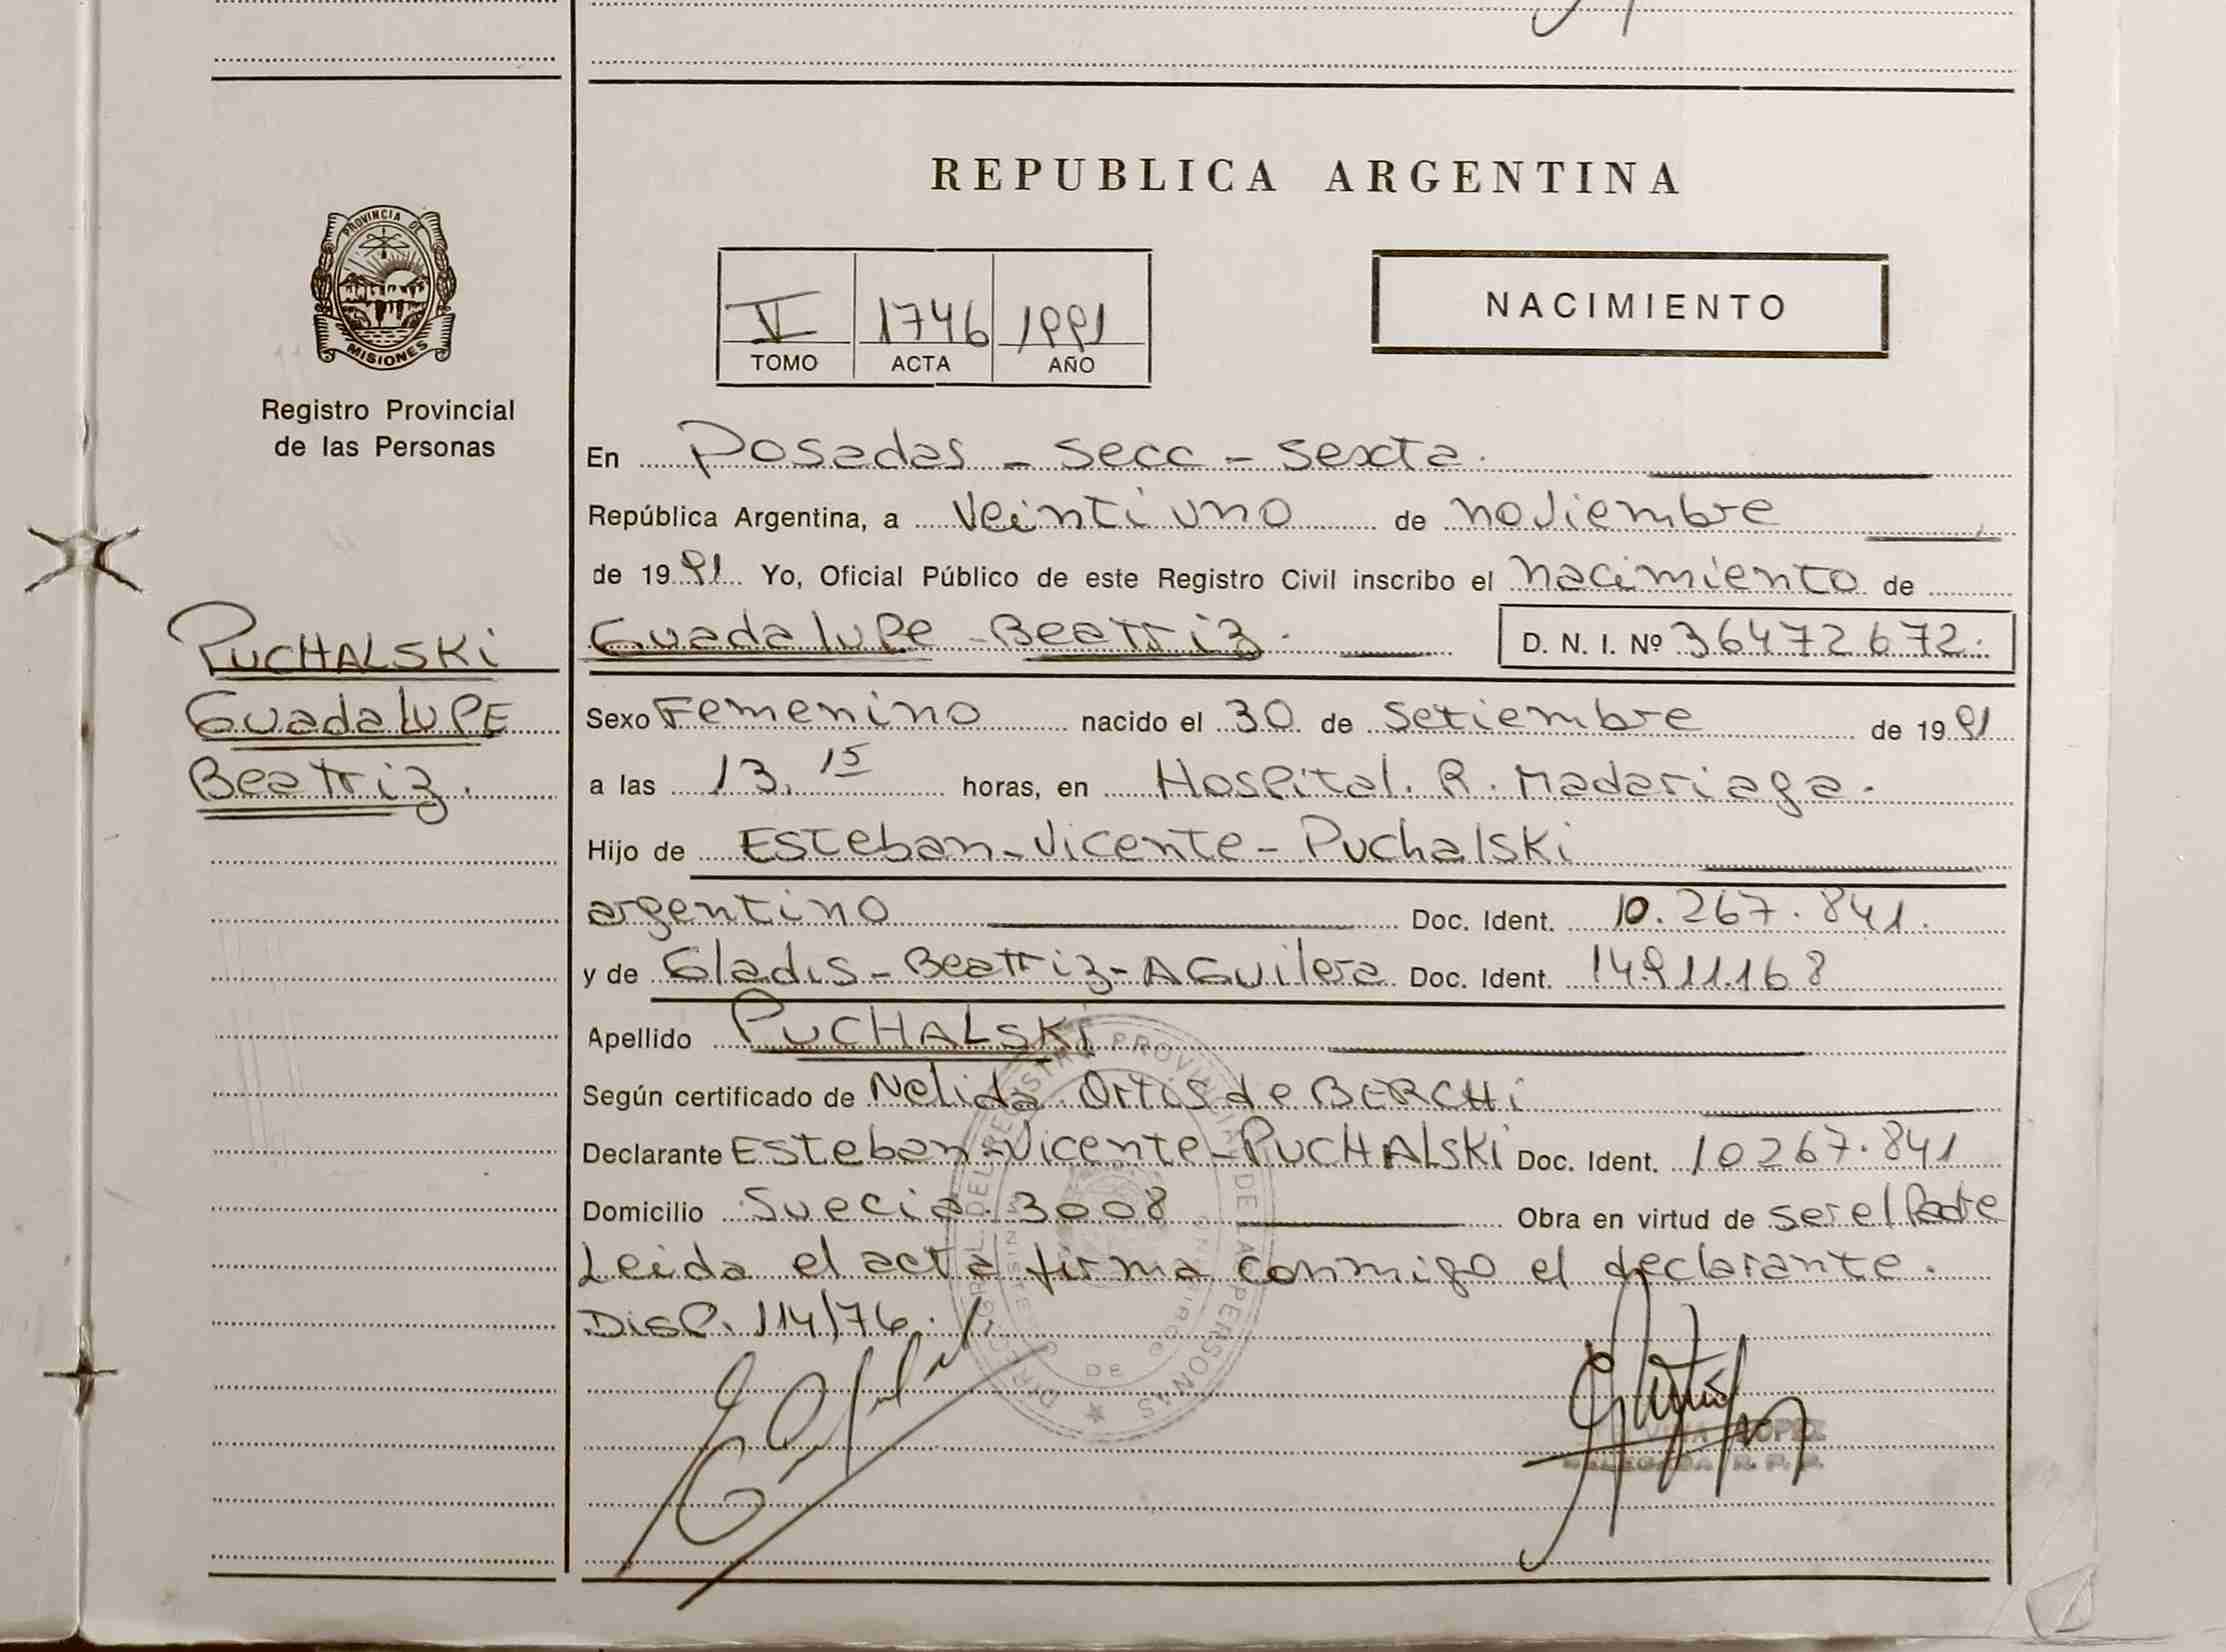 REPUBLICA ARGENTINA
PROVINCIA DE
MISIONES
Registro Provincial
de las Personas
V 1746 1991
TOMO ACTA AÑO
NACIMIENTO
En Posadas - Secc - Sexta.
República Argentina, a Veintiuno de noviembre
de 1991 Yo, Oficial Público de este Registro Civil inscribo el nacimiento de
PUCHALSKi
GuadaLUPE
Beatriz.
Guadalupe - Beatriz. D. N. I. Nº 36472672.
Sexo Femenino nacido el 30 de Setiembre de 1991
a las 13.15 horas, en Hospital. R. Madariaga.
Hijo de Esteban - Vicente - Puchalski
argentino Doc. Ident. 10.267.841.
y de Gladis - Beatriz - Aguilera Doc. Ident. 14.911.168
Apellido PUCHALSKi
Según certificado de Nelida Ortis de BERCHi
Declarante Esteban - Vicente - PUCHALSKi Doc. Ident. 10267.841
Domicilio Suecia 3008 Obra en virtud de ser el Padre
Leida el acta firma conmigo el declarante.
Disp. 114/76.
DIREC. GRAL. DEL REGISTRO PROVINCIAL DE LAS PERSONAS
LOPEZ